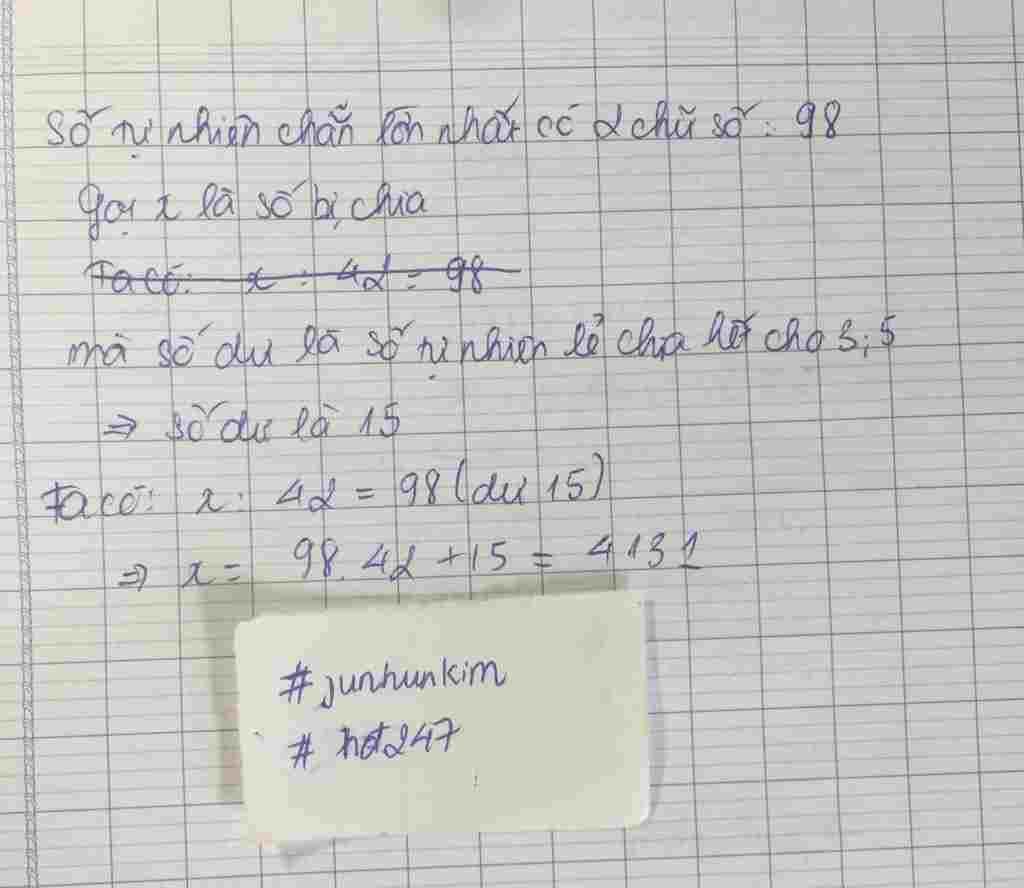 Số tự nhiên chẵn lớn nhất có 2 chữ số: 98
Gọi x là số bị chia
Ta có: x : 42 = 98
mà số dư là số tự nhiên lẻ chia hết cho 3; 5
⇒ số dư là 15
Ta có: x : 42 = 98 (dư 15)
⇒ x = 98.42 + 15 = 4131
#junhunkim
# hot247